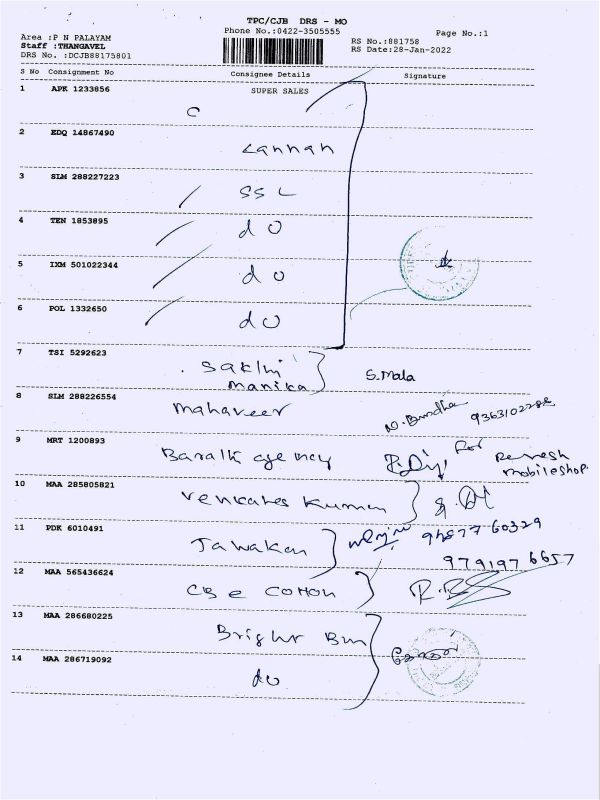 TPC/CJB DRS - MO
Area :P N PALAYAM
Phone No.:0422-3505555
Page No.:1
Staff :THANGAVEL
RS No.:881758
DRS No. :DCJB88175801
RS Date:28-Jan-2022
S No Consignment No Consignee Details Signature
1 APK 1233856 SUPER SALES
C
2 EDQ 14867490
Kannan
3 SLM 288227223
SSL
4 TEN 1853895
do
5 IXM 501022344
do
6 POL 1332650
do
7 TSI 5292623
Sakhi
manika S.Mala
8 SLM 288226554
mahaveer 9363102288
9 MRT 1200893
agency for Remesh
mobileshop
10 MAA 285805821
Venkates Kumar
11 PDK 6010491
60329
979197 6657
12 MAA 565436624
CBE Cotton
13 MAA 286680225
Bright
14 MAA 286719092
do